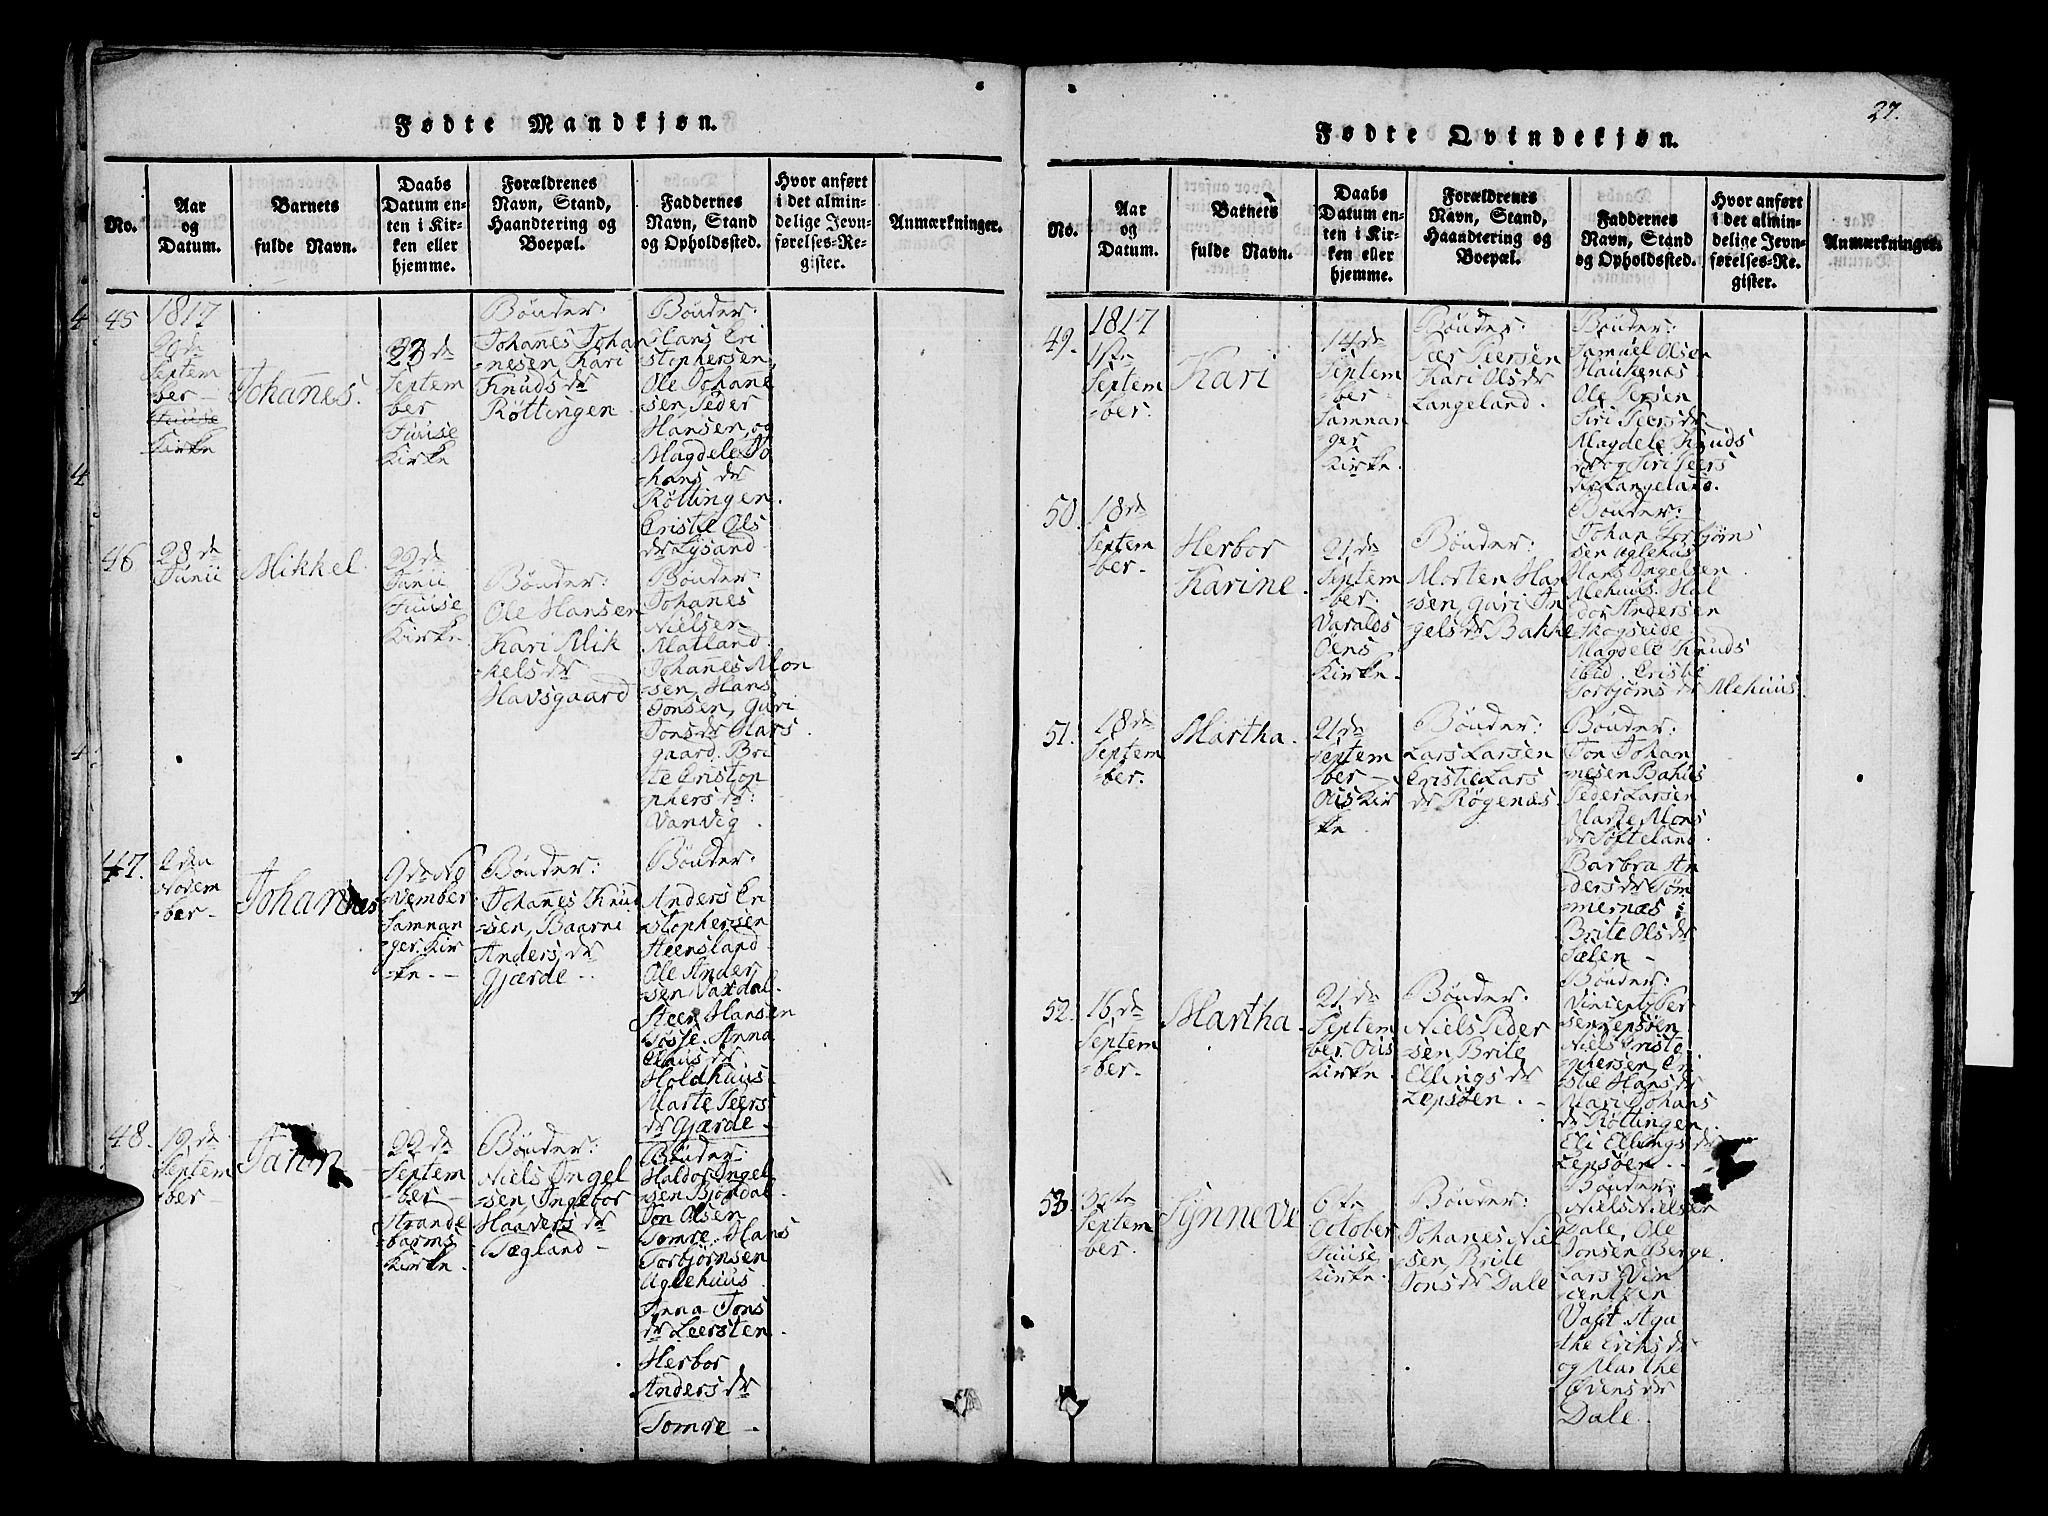 Fødte Mandkjøn.
No.
Aar
og
Datum.
Barnets
fulde Navn.
Daabs
Datum en-
ten i Kir-
ken eller
hjemme.
Forældrenes
Navn, Stand,
Haandtering og
Boepæl.
Faddernes
Navn, Stand
og Opholdssted.
Hvor anført
i det almin-
delige Jevn-
førelses-Re-
gister.
Anmærkninger.
45
1817
20 de
Septem
ber
Fuuse
Kirke
Johanes.
23 de
Septem
ber
Fuuse
Kirke
Bønder:
Johanes Johan
-nesen Kari
Knuds dr
Røttingen
Bønder:
Hans Cri
stophersen,
Ole Johane
sen, Peder
Hansen, og
Magdele Jo
-hans dr
Røttingen.
Cristie Ols
dr Lysand
46
28 de
Junii
Mikkel
29 de
Junii
Fuuse
Kirke
Bønder:
Ole Hansen
Kari Mik
-kels dr
Havsgaard
Bønder:
Johanes
Nielsen
Matland.
Johanes Mon
-sen, Hans
Jonsen, Guri
Jons dr Hafs
gaard. Bri
te Cristop
phers dr:
Vanvig.
47.
2 den
Novem
-ber-
Johannes
9 de No
vember
Samnan
-ger Kir
-ke.-
Bønder:
Johanes Knud
-sen, Baarni
Anders dr
Gjærde..
Bønder:
Anders Cri
stophersen
Aeensland
Ole Ander
-sen Vaxdal.
Steen Hansen
Tøsse. Anna
Claus dr
Holdhuus
Marte Peers
dr Gjærde-
48.
19 de
Septem
ber-
22 de
Septem
-ber-
Strande
barms
Kirke.
Bønder:
Niels Ingel
sen, Ingebor
Haavers dr
Tægland-
Bønder:
Haldor Ingel
sen Bjørdal.
Jon Olsen
Tomre. Hans
Torbjørnsen
Aglehuus
Anna Jons
dr Leersten.
Herbor
Anders dr
Tomre-
27.
Fødte Qvindekjøn.
No.
Aar
og
Datum.
Barnets
fulde Navn.
Daabs
Datum en-
ten i Kir-
ken eller
hjemme.
Forældrenes
Navn, Stand,
Haandtering og
Boepæl.
Faddernes
Navn, Stand
og Opholdssted.
Hvor anført
i det almin-
delige Jevn-
førelses-Re-
gister.
Anmærkninger.
49.
1817
Septem
-ber.
Kari
14 de
Septem
ber-
Samnan
ger
Kirke.
Bønder:
Peer Peersen
Kari Ols dr
Langeland.
Bønder:
Samuel Olsen
Haukenæs.
Ole Persen
Siri Peers dr
Magdele Knuds
dr og Siri Peers
dr Langeland.
50.
18 de
Septem
-ber.
Herbor
Karine.
21 de
Septem
-ber:
Varalds
Øens
Kirke.
Bønder:
Morten Han
-sen, Guri In
gels dr Bakke
Bønder:
Johan Torbjørns
sen Aglehus
Hans Ingelsen
Alehuus. Hal
dor Andersen
Skogseide
Magdele Knuds
ibid. Cristie
Torbjørns dr Alehuus.
51.
18 de
Septem
-ber.
Martha.
21 de
Septem
-ber-
Ous Kir
ke.
Bønder:
Lars Larsen
Cristie Lars
dr Røgenæs.
Bønder:
Jon Johan
-nesen Bahus
Peder Larsen
Marte Mons
dr Søfteland.
Barbra An
ders dr Tøm
mernæs:
Brite Ols dr
Sælen-
52.
16 de
Septem
-ber.
Martha.
21 de
Septem
ber. Ous
Kirke.
Bønder:
Niels Peder
-sen, Brite
Ellings dr
Lepsøen.-
Bønder:
sen Lepsøen
Niels Cristo
phersen, Cri
-stie Hans dr
Mari Johans
dr Røttingen.
Eli Ellings dr
Lepsøen..
53.
30te
Septem
ber.
Synneve
6te
October
Fuuse
Kirke.
Bønder:
Johanes Niel
sen, Brite
Jons dr Dale
Bønder:
Niels Nielsen
Dale, Ole
Jonsen Berge.
Lars Vin
-centzen
Vaft. Aga
the Eriks dr
og Marthe
Øvens dr
Dale.